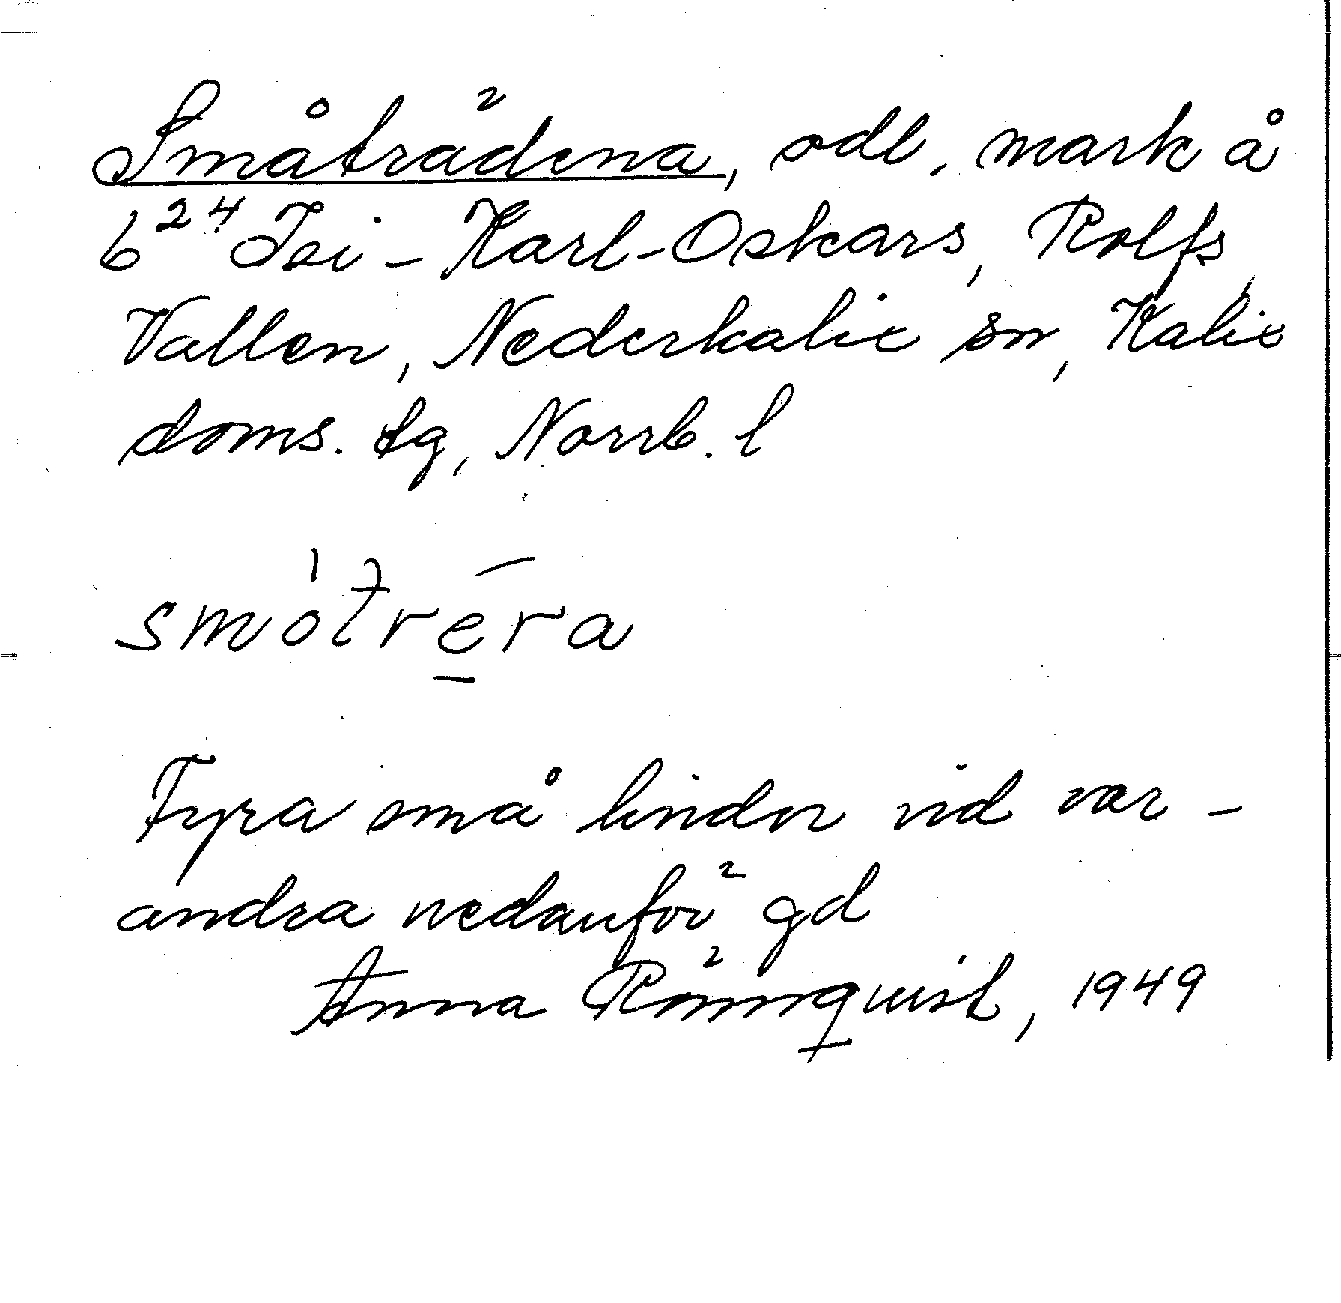 Småträdena, odl. mark å
6²⁴ Isi-Karl-Oskars, Rolfs,
Vallen, Nederkalix sn, Kalix
doms. tg, Norrb. l
smótrēra
Fyra små lindor vid var-
andra nedanför gd
Anna Rönnquist, 1949